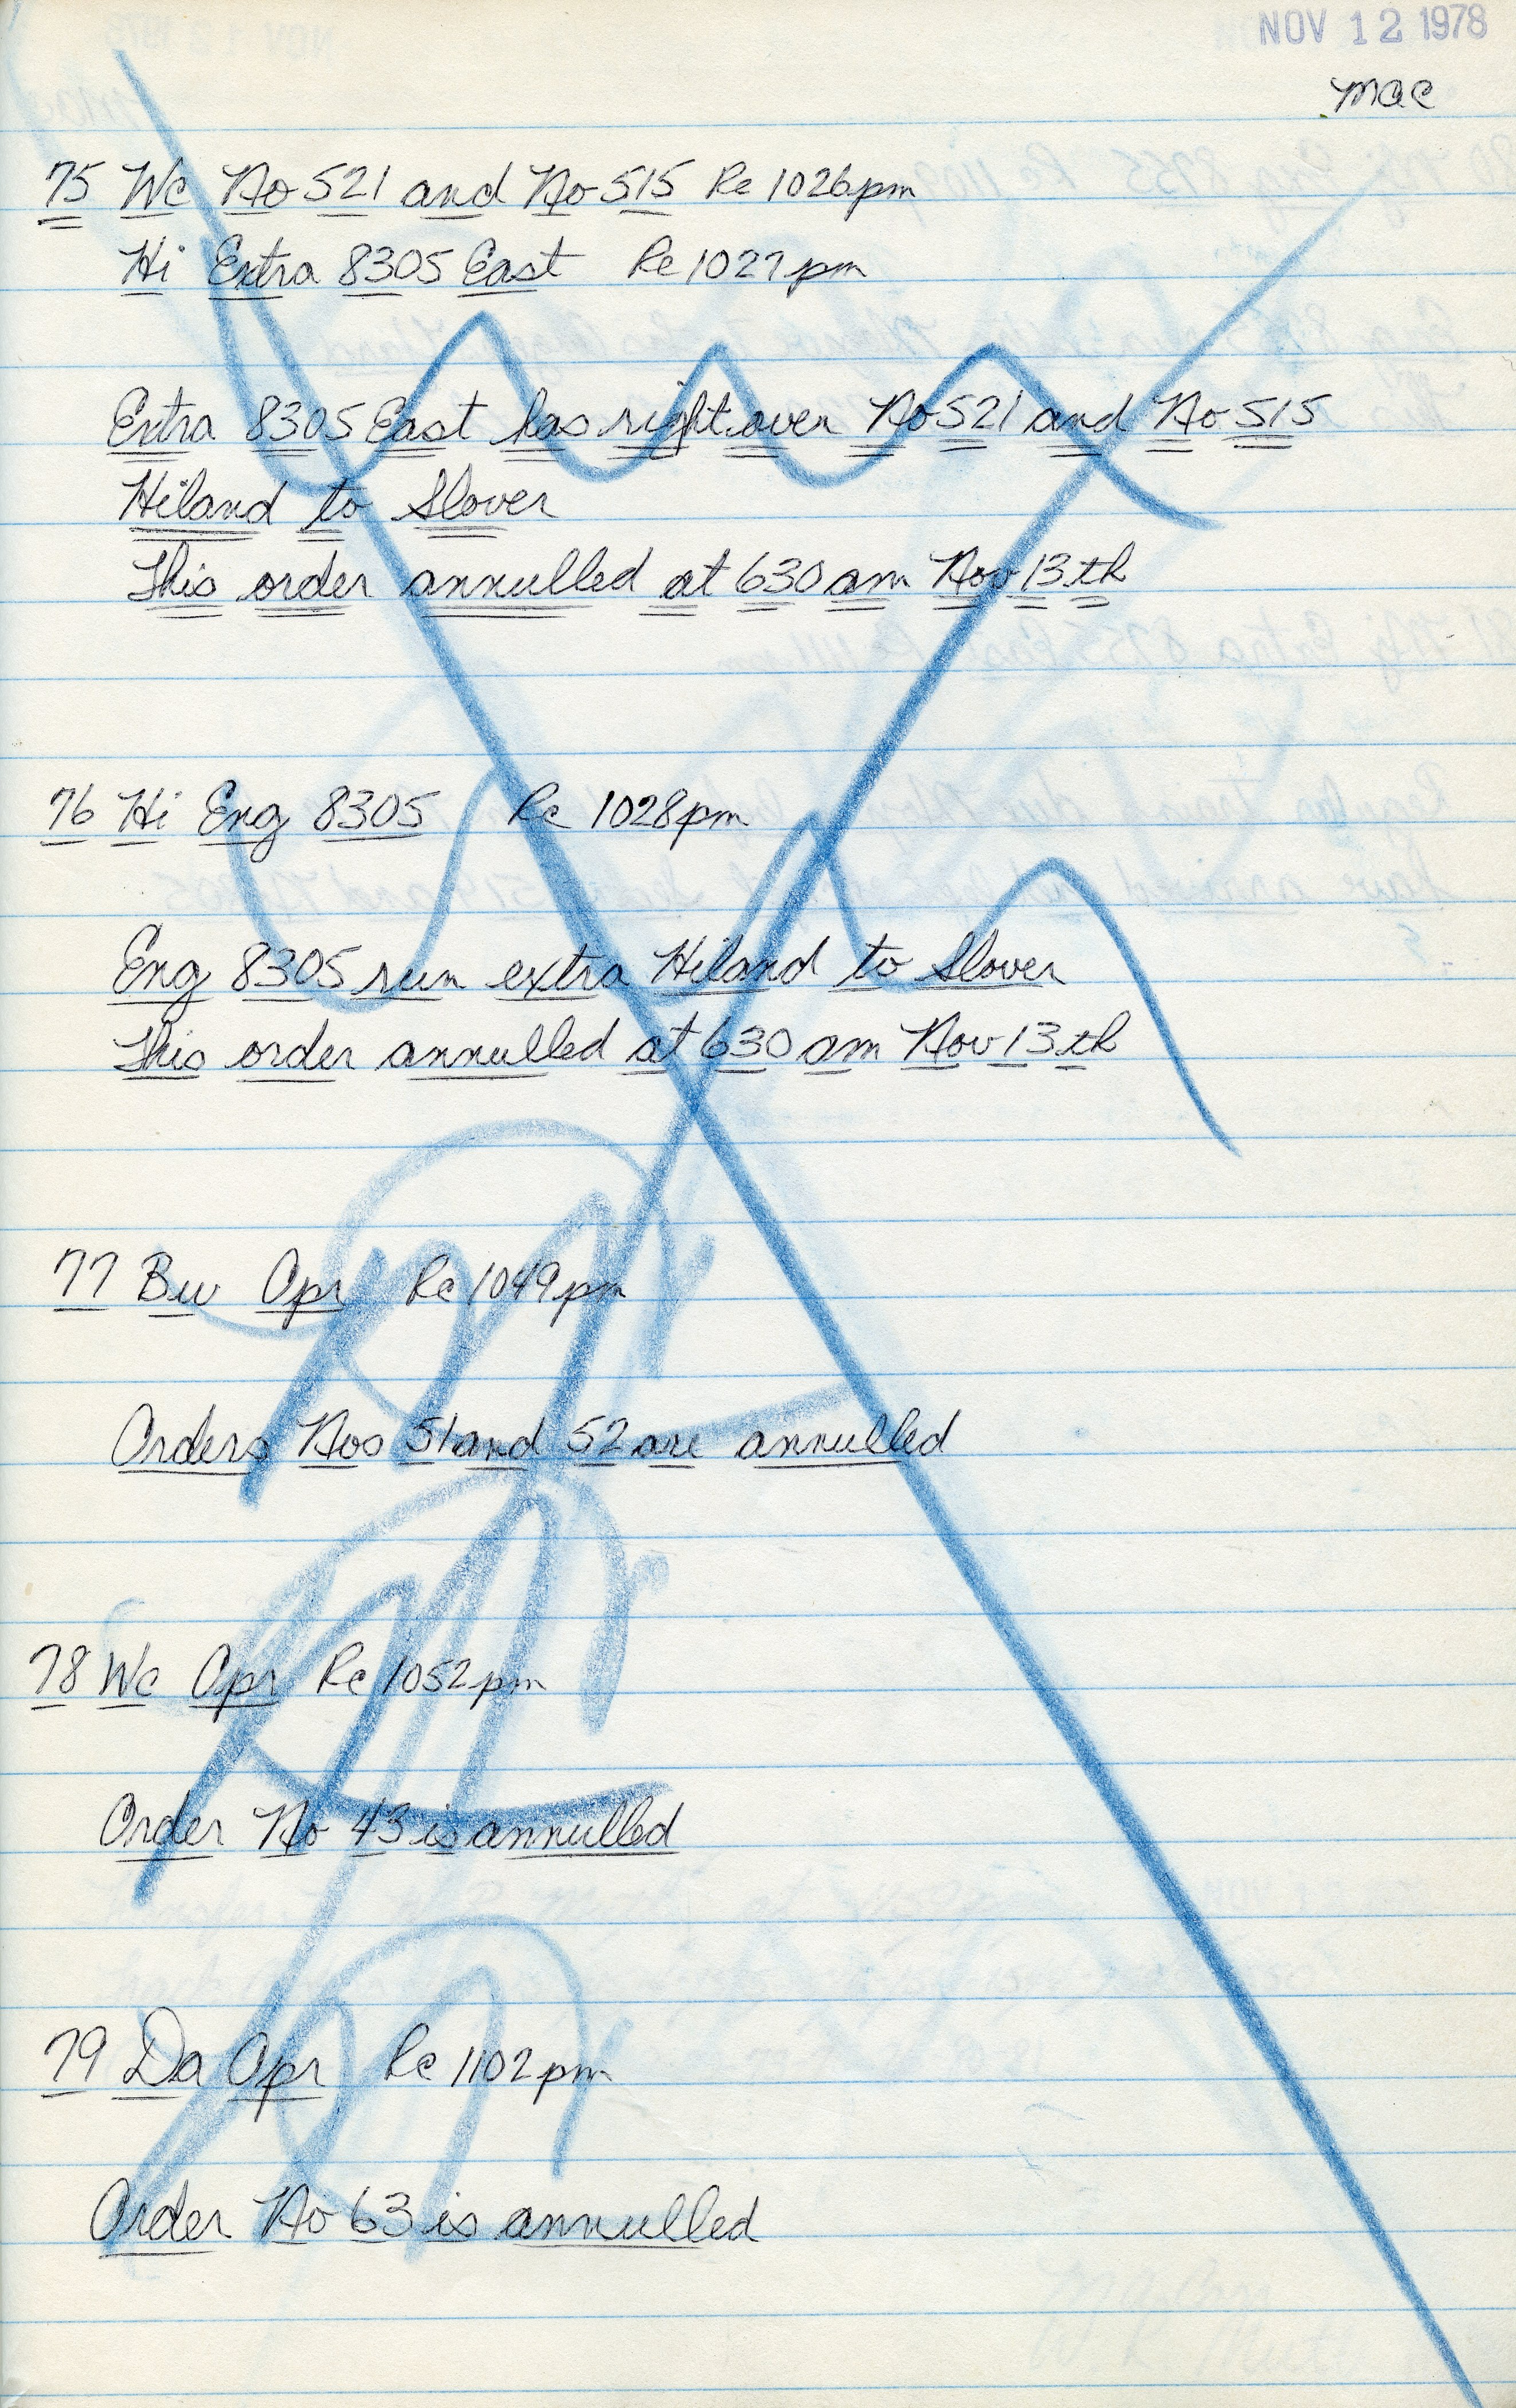 NOV 12 1978
mac
75 Wc No 521 and No 515 Rc 1026pm
Hi Extra 8305 East Rc 1027pm
Extra 8305 East has right over No 521 and No 515
Hiland to Slover
This order annulled at 630 am Nov 13th
76 Hi Eng 8305 Rc 1028pm
Eng 8305 run extra Hiland to Slover
This order annulled at 630 am Nov 13th
77 Bw Opr Rc 1049pm
Orders Nos 51 and 52 are annulled
78 Wc Opr Rc 1052pm
Order No 43 is annulled
79 Da Opr Rc 1102pm
Order No 63 is annulled